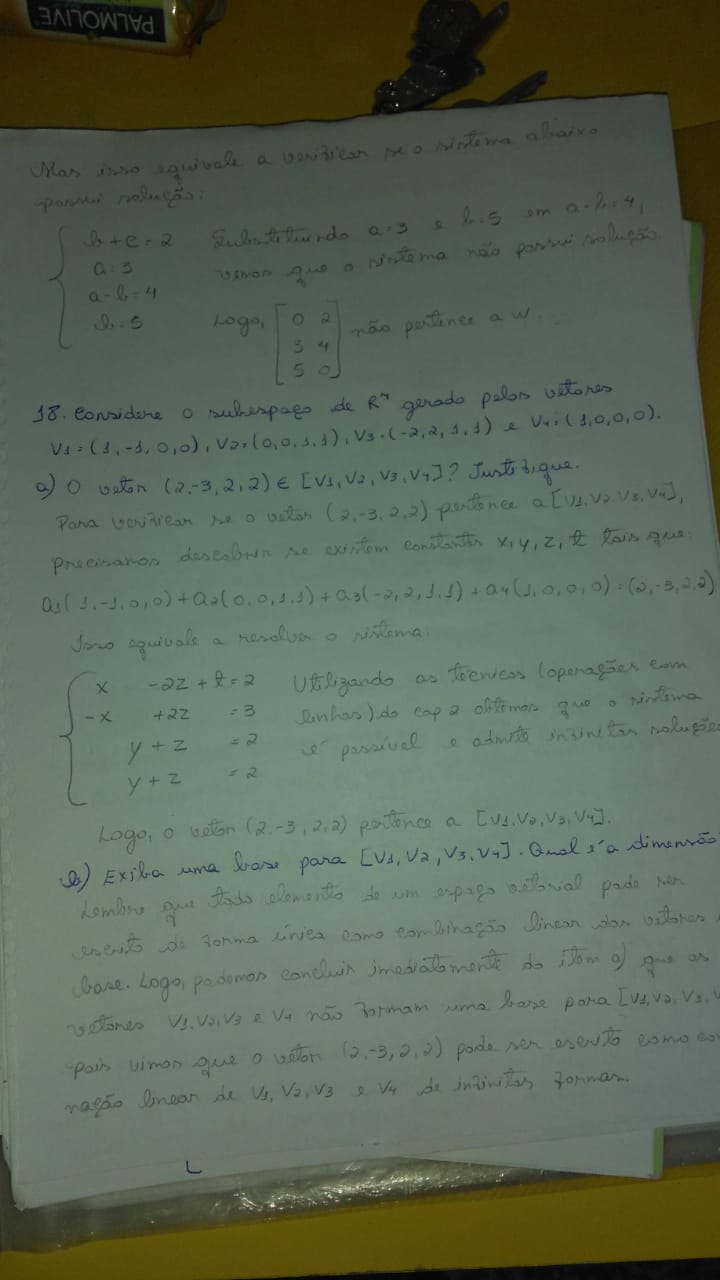 PALMOLIVE
Mas isso equivale a verificar se o sistema abaixo
possui solução:
b + c = 2 Substituindo a = 3 e b = 5 em a - b = 4,
a = 3 vemos que o sistema não possui solução
a - b = 4
b = 5 Logo, [0 2
3 4
5 0] não pertence a W.
18. Considere o subespaço de R⁴ gerado pelos vetores
V1 = (1, -1, 0, 0), V2 = (0, 0, 1, 1), V3 = (-2, 2, 1, 1) e V4 = (1, 0, 0, 0).
a) O vetor (2, -3, 2, 2) ∈ [V1, V2, V3, V4]? Justifique.
Para verificar se o vetor (2, -3, 2, 2) pertence a [V1, V2, V3, V4],
precisamos descobrir se existem constantes x, y, z, t tais que:
a1(1, -1, 0, 0) + a2(0, 0, 1, 1) + a3(-2, 2, 1, 1) + a4(1, 0, 0, 0) = (2, -3, 2, 2)
Isso equivale a resolver o sistema.
x - 2z + t = 2 Utilizando as técnicas (operações com
-x + 2z = 3 linhas) do cap 2 obtemos que o sistema
y + z = 2 é possível e admite infinitas soluções
y + z = 2
Logo, o vetor (2, -3, 2, 2) pertence a [V1, V2, V3, V4].
b) Exiba uma base para [V1, V2, V3, V4]. Qual é a dimensão
Lembre que todo elemento de um espaço vetorial pode ser
escrito de forma única como combinação linear dos vetores
base. Logo, podemos concluir imediatamente do item a) que os
vetores V1, V2, V3 e V4 não formam uma base para [V1, V2, V3, V
pois vimos que o vetor (2, -3, 2, 2) pode ser escrito como co
nação linear de V1, V2, V3 e V4 de infinitas formas.